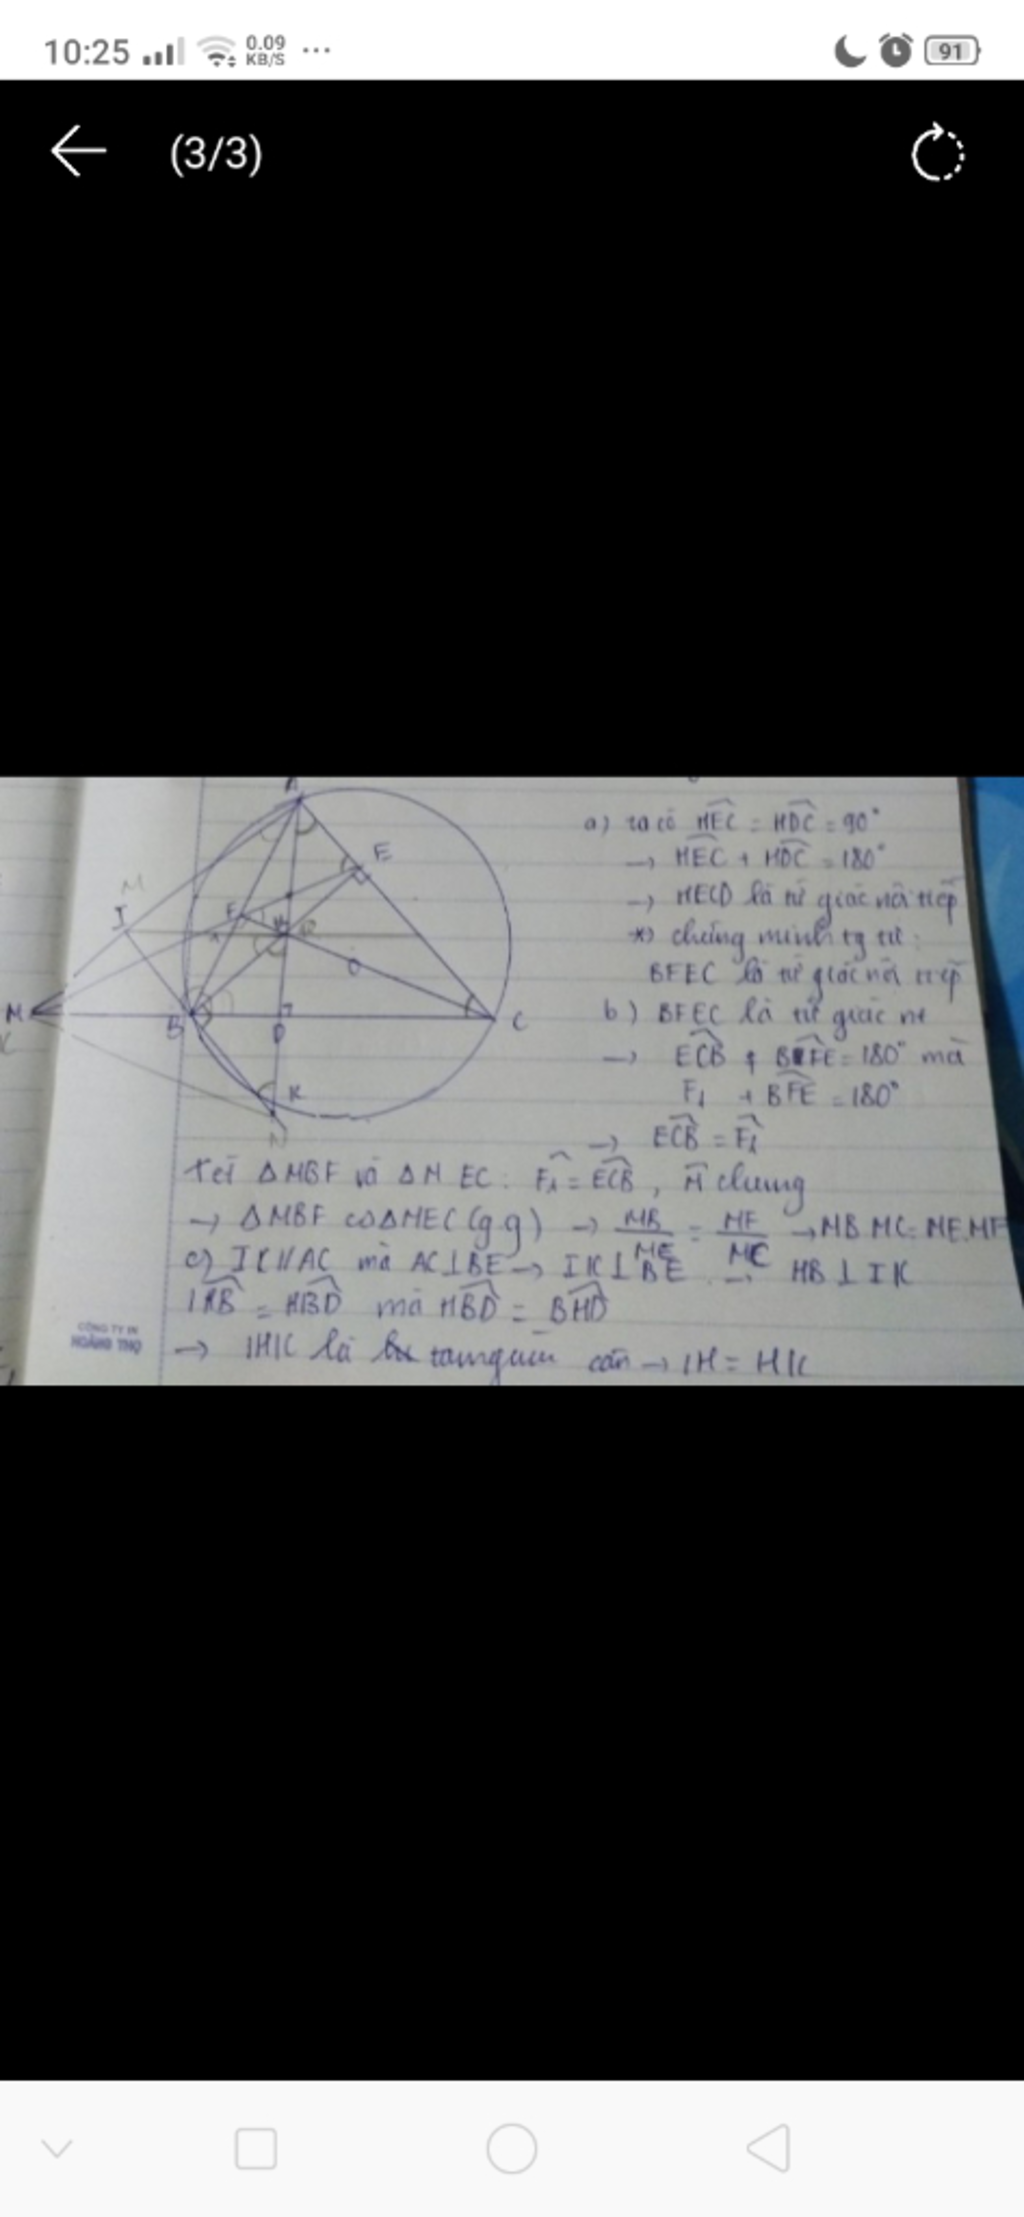 10:25
0.09
KB/S
91
(3/3)
A
E
M
I
F
H
O
M
B
D
C
K
N
a) ta có HEC = HDC = 90°
→ HEC + HDC = 180°
→ HECD là tứ giác nội tiếp
*) chứng minh tg tự :
BFEC là tứ giác nội tiếp
b) BFEC là tứ giác nt
→ ECB + BFE = 180° mà
F1 + BFE = 180°
→ ECB = F1
Xét Δ MBF và Δ MEC : F1 = ECB , M chung
→ Δ MBF ∽ Δ MEC (g.g) → MB/ME = MF/MC → MB.MC = ME.MF
c) IK // AC mà AC ⊥ BE → IK ⊥ BE → HB ⊥ IK
= HBD mà HBD = BHD
CÔNG TY IN
HOÀNG THỌ
→ IHK là tam giác cân → IH = HK